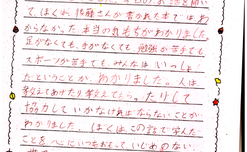 てぼくは、佐藤さんが書のあるま本ではわ
からなかった本当の気持ちがわかりました。
足がなくても、手がなくても、勉強が苦手でも
スポーツが苦手でも、みんなはいっしょ
たということが、わかりました。人は
教えてあげたり教えてもらったり、たすけて
協力していかなければならないことが
わかりました。ぼくはこの話で学んだ
ことを、心にいつもおもって、いじめのない